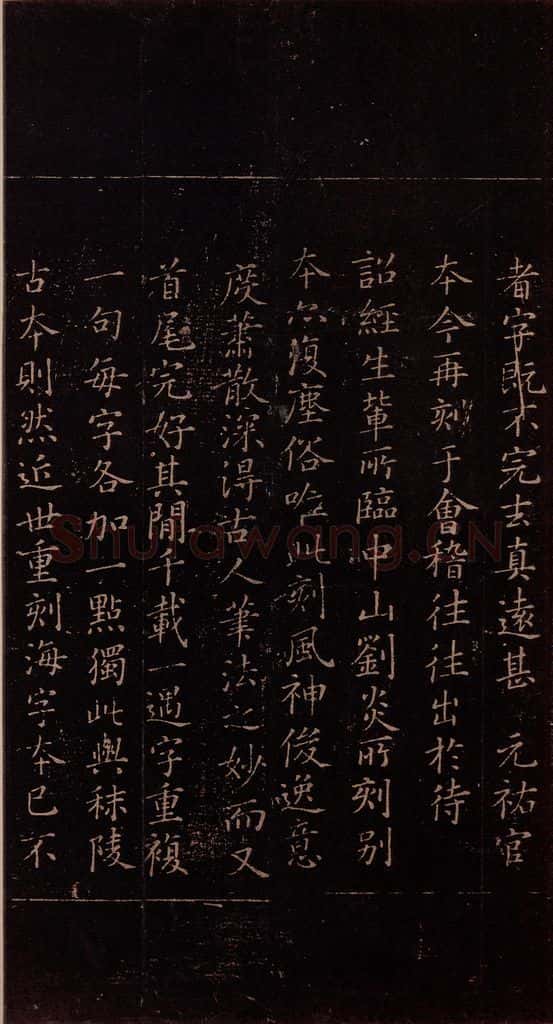 者字既不完去真遠甚　元祐官
本今再刻于會稽往往出於待
詔經生輩所臨中山劉炎所刻别
本亦復塵俗唯此刻風神俊逸意
度蕭散深得古人筆法之妙而又
首尾完好其間千載一遇字重複
一句每字各加一點獨此與秣陵
古本則然近世重刻海字本已不
Shufawang.CN